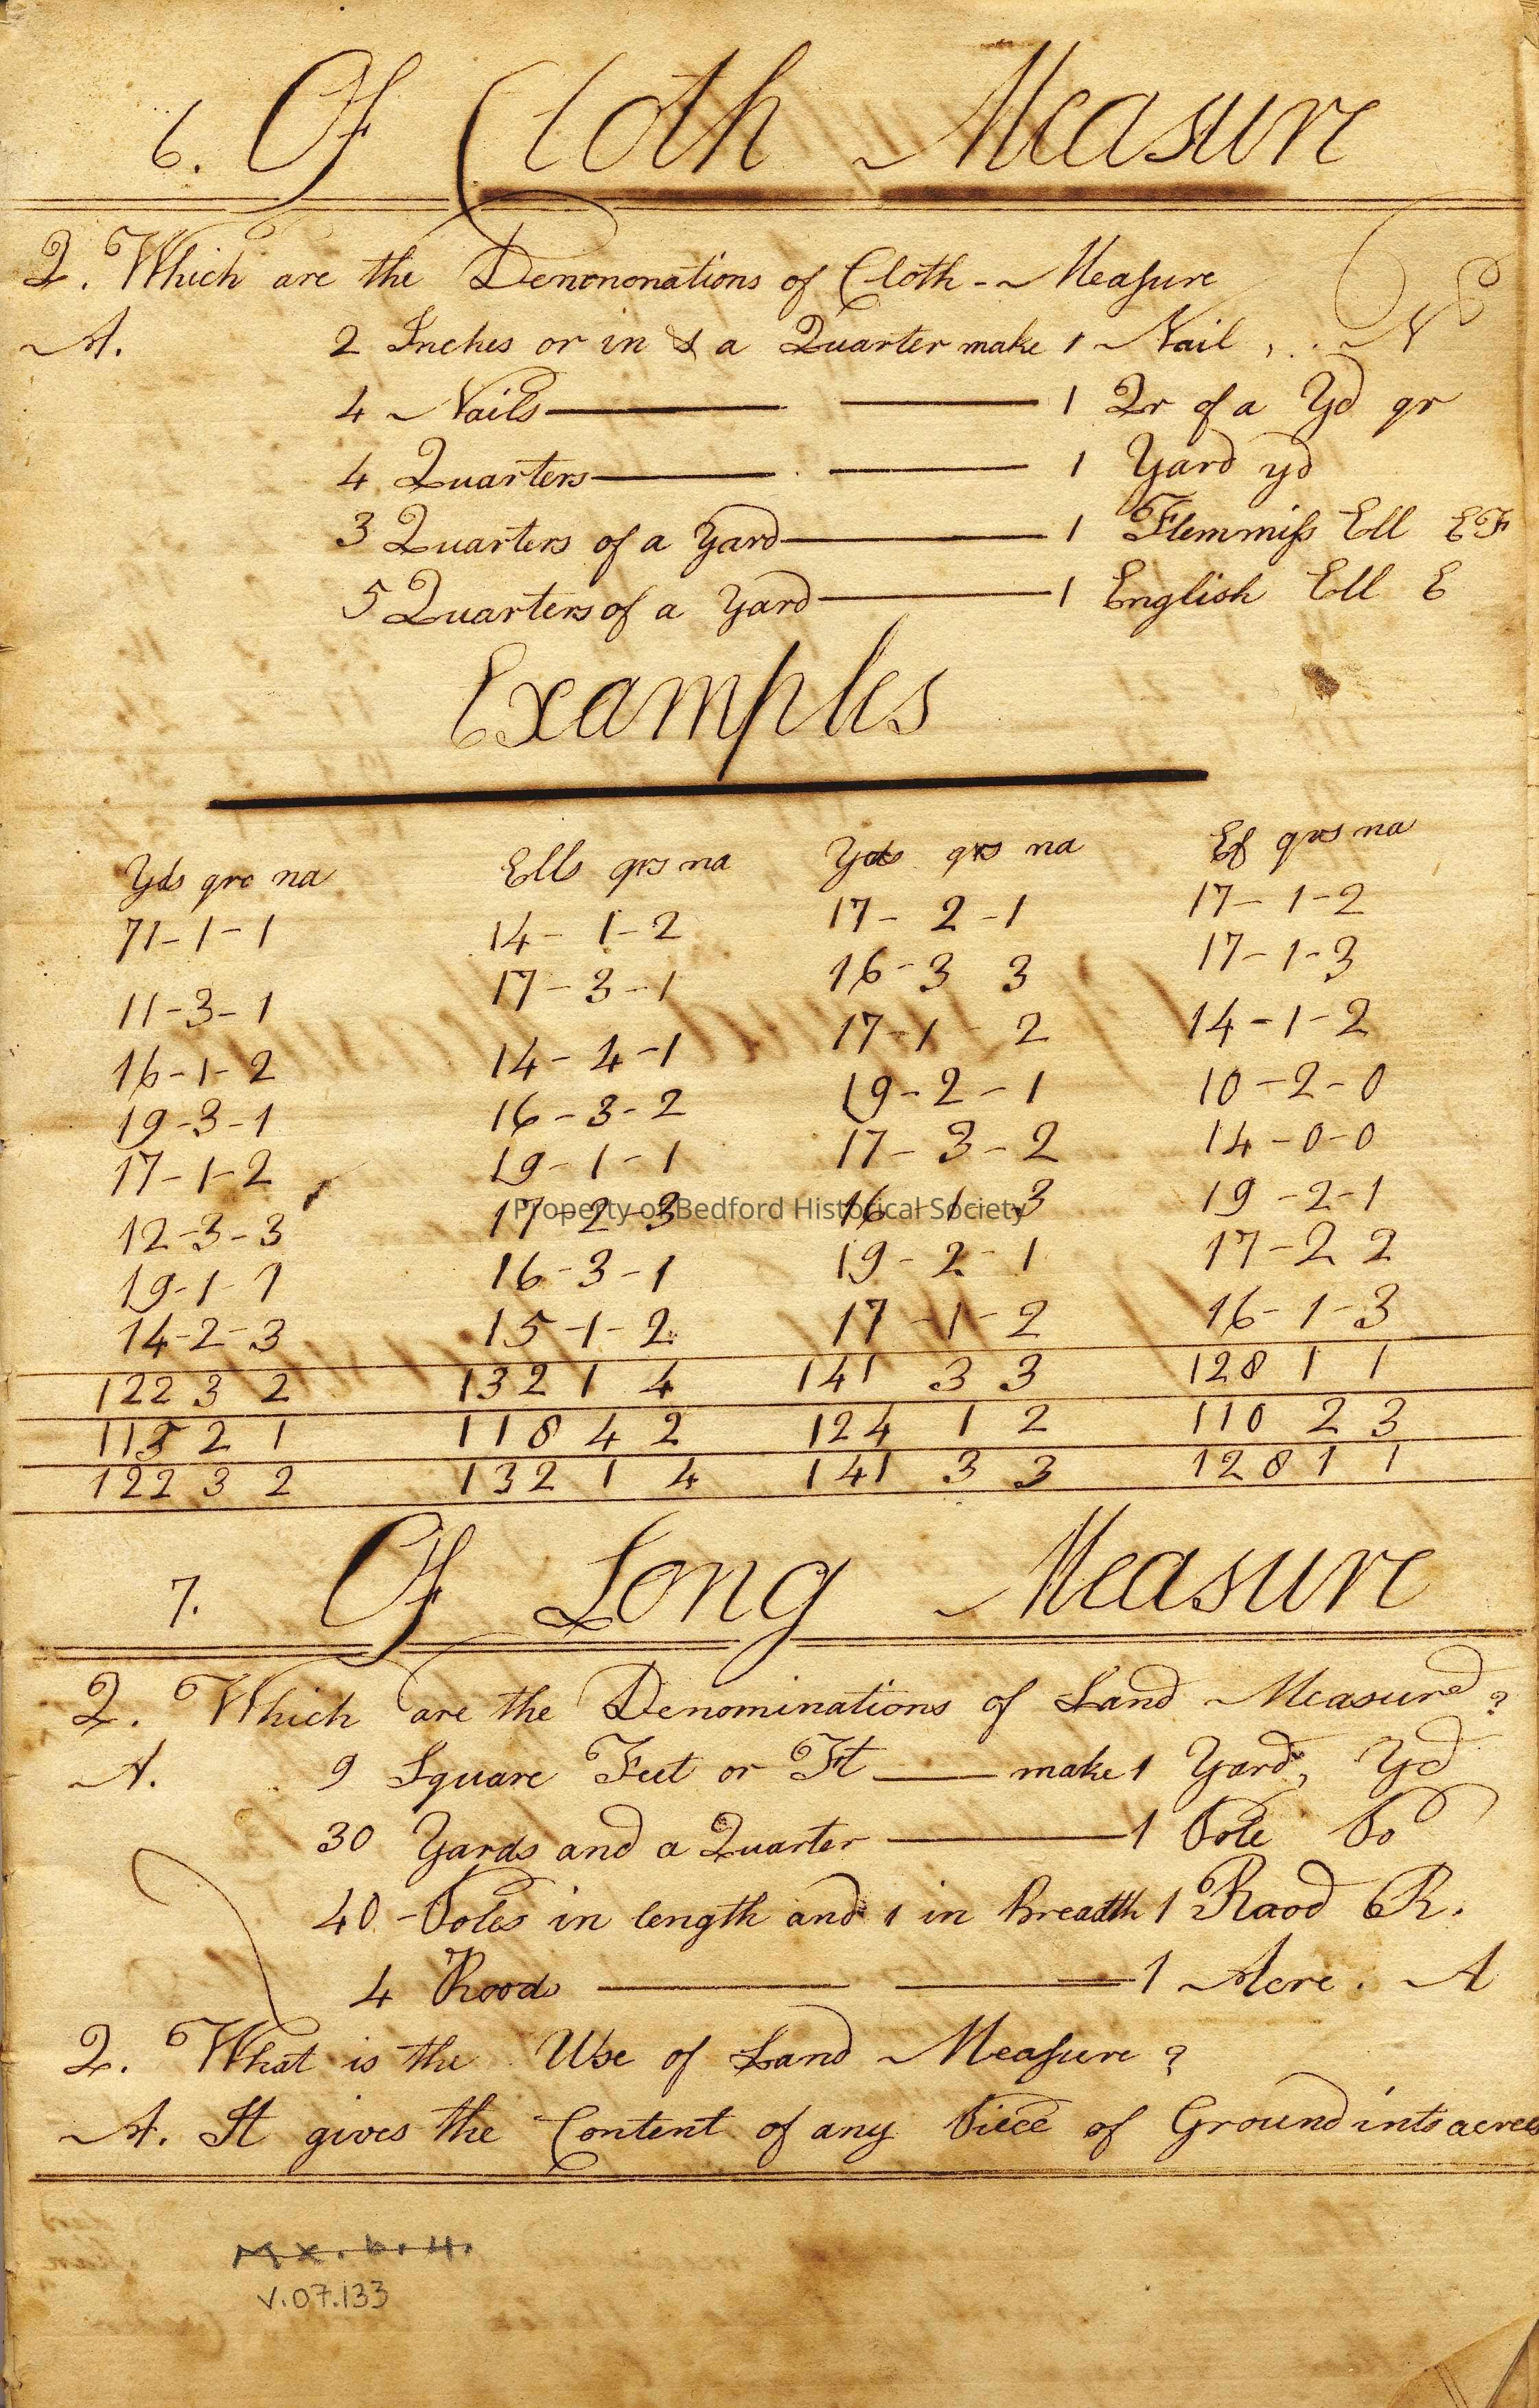 6. Of Cloth Measure
Q. Which are the Denononations of Cloth - Measure
A. 2 Inches or in & a Quarter make 1 Nail , . . N
4 Nails 1 Qr of a Yd qr
4 Quarters 1 Yard yd
3 Quarters of a Yard 1 Flemmiſs Ell EF
5 Quarters of a Yard 1 English Ell E
Examples
Yds qrs na Ells qrs na Yds qrs na Ef qrs na
71-1-1 14-1-2 17-2-1 17-1-2
11-3-1 17-3-1 16-3 3 17-1-3
16-1-2 14-4-1 17-1-2 14-1-2
19-3-1 16-3-2 19-2-1 10-2-0
17-1-2 19-1-1 17-3-2 14-0-0
12-3-3 17-2-3 16-1-3 19-2-1
Property of Bedford Historical Society
19-1-1 16-3-1 19-2-1 17-2 2
14-2-3 15-1-2 17-1-2 16-1-3
122 3 2 132 1 4 141 3 3 128 1 1
115 2 1 118 4 2 124 1 2 110 2 3
122 3 2 132 1 4 141 3 3 128 1 1
7. Of Long Measure
Q. Which are the Denominations of Land Measure ?
A. 9 Square Feet or Ft make 1 Yard, Yd
30 Yards and a Quarter 1 Pole Po
40 - Poles in length and 1 in Breadth 1 Raod R.
4 Roods 1 Acre . A
Q. What is the Use of Land Meaſure ?
A. It gives the Content of any Piece of Ground into acres
Mx.b.4.
V.07.133